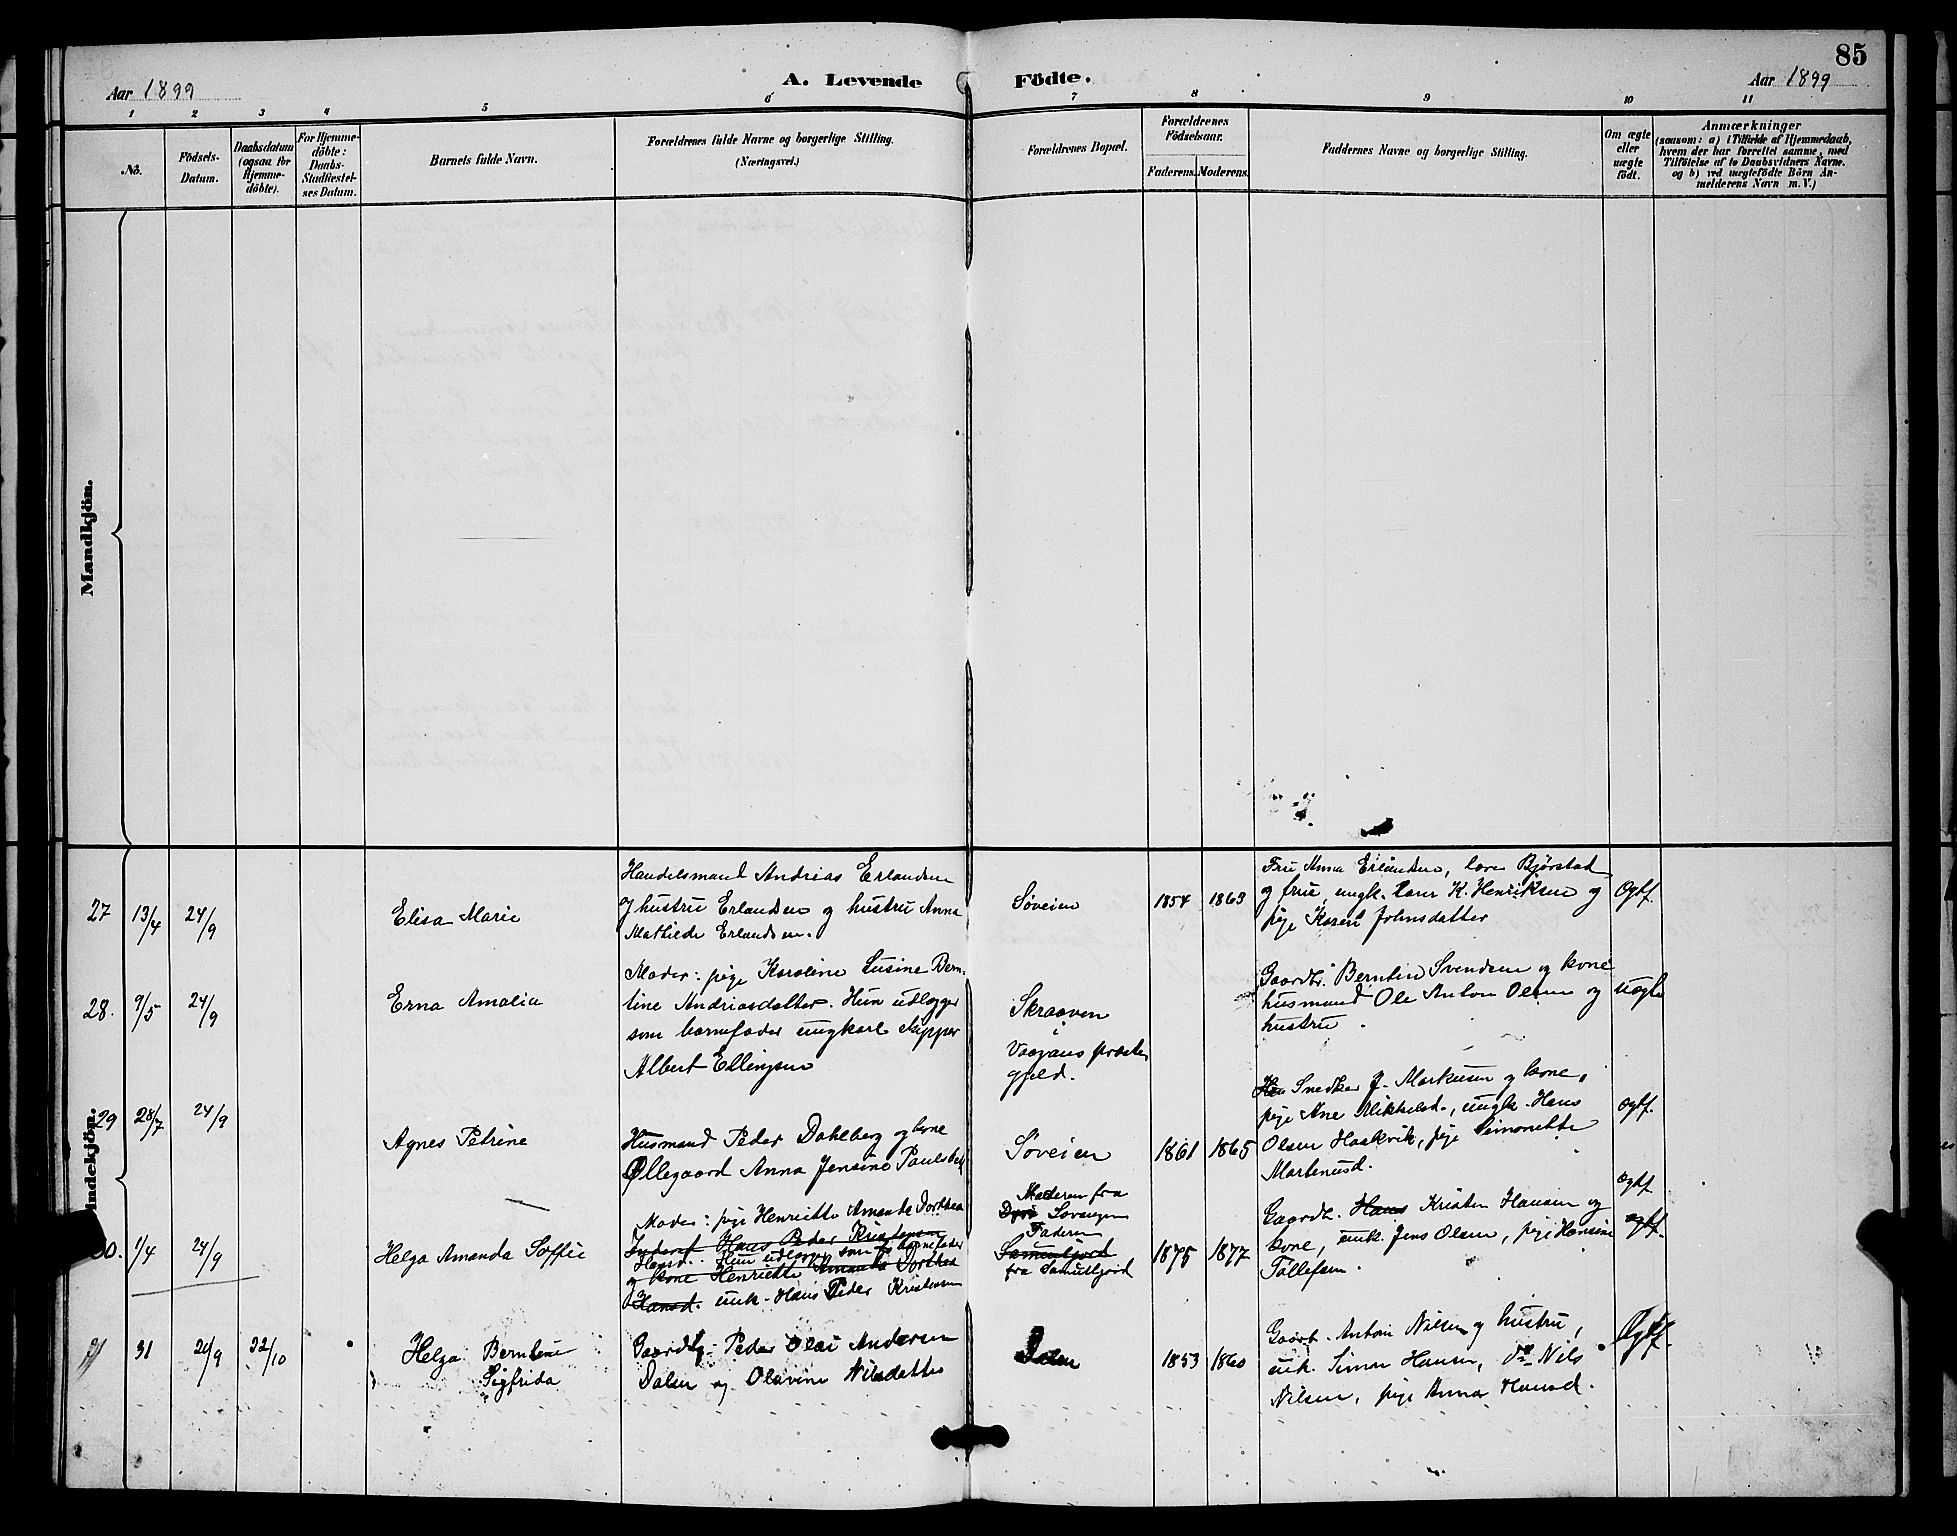 85
Aar 1899
A. Levende Födte.
Aar 1899
1 2 3 4 5 6 7 8 9 10 11
No.
Födsels-
Datum.
Daabsdatum
(ogsaa for
Hjemme-
döbte).
For Hjemme-
döbte:
Daabs-
Stadfæstel-
ses Datum.
Barnets fulde Navn.
Forældrenes fulde Navne og borgerlige Stilling.
(Næringsvei.)
Forældrenes Bopæl.
Forældrenes
Födselsaar.
Faderens. Moderens.
Faddernes Navne og borgerlige Stilling.
Om ægte
eller
uægte
födt.
Anmærkninger
(saasom: a) i Tilfælde af Hjemmedaab,
hvem der har forrettet samme, med
Tilföielse af to Daabsvidners Navne.
og b) ved uægtefödte Börn An-
melderens Navn m. V.)
Mandkjön.
Qvindekjön.
27 13/4 24/9
Elisa Marie
Handelsmand Andreas Erlandsen
og hustru Erlandsen og hustru Anna
Mathilde Erlandsen.
Søveien
1854 1863
Fru Anna Erlandsen, lærer Bjørstad
og frue, ungk. lærer K. Henriksen og
pige Karen Johnsdatter
Ægtf.
28. 9/5 24/9
Erna Amalia
Moder: pige Karoline Lusine Bern-
tine Andriasdatter. Hun udlægger
som barnefader ungkarl skipper
Albert Ellingsen
Skraaven
i
Vaagans præste-
gjeld.
Gaardbr. Berntin Svendsen og kone
husmand Ole Anton Olsen og
hustru.
uægte
29 28/7 24/9
Agnes Petrine
Husmand Peder Dahlberg og kone
Øllegaard Anna Jensine Paulsdatt
Søveien
1861 1865
Snedker J. Markusen og kone,
pige Ane Mikkelsd., ungk. Hans
Olsen Haakvik, pige Simonette
Martenusd.
Ægtf.
30. 1/4 24/9
Helga Amanda Soffie
Moder: pige Henriette Amanda Dorthea
Inderst Hans Peder Kristensen
Hansd. Hun udlægger som barnefader
og kone Henriette Amanda Dorthea
Hansd. unk. Hans Peder Kristensen
Moderen fra
Søvangen
Faderen
Samueljord
fra Samueljord
1875 1877
Gaardb. Hans Kristen Hansen og
kone, unk. Jens Olsen, pige Hansine
Tollefsen.
ægtf.
ægtf.
31 31 24/9 22/10
Helga Berntine
Sigfrida
Gaardbg. Peder Olai Andersen
Dalen og Olavine Nilsdatter
Dalen
1853 1860
Gaarb. Anton Nilsen og hustru,
unk. Simon Hansen, do Nils
Nilsen, pige Anna Hansd.
Ægtf.